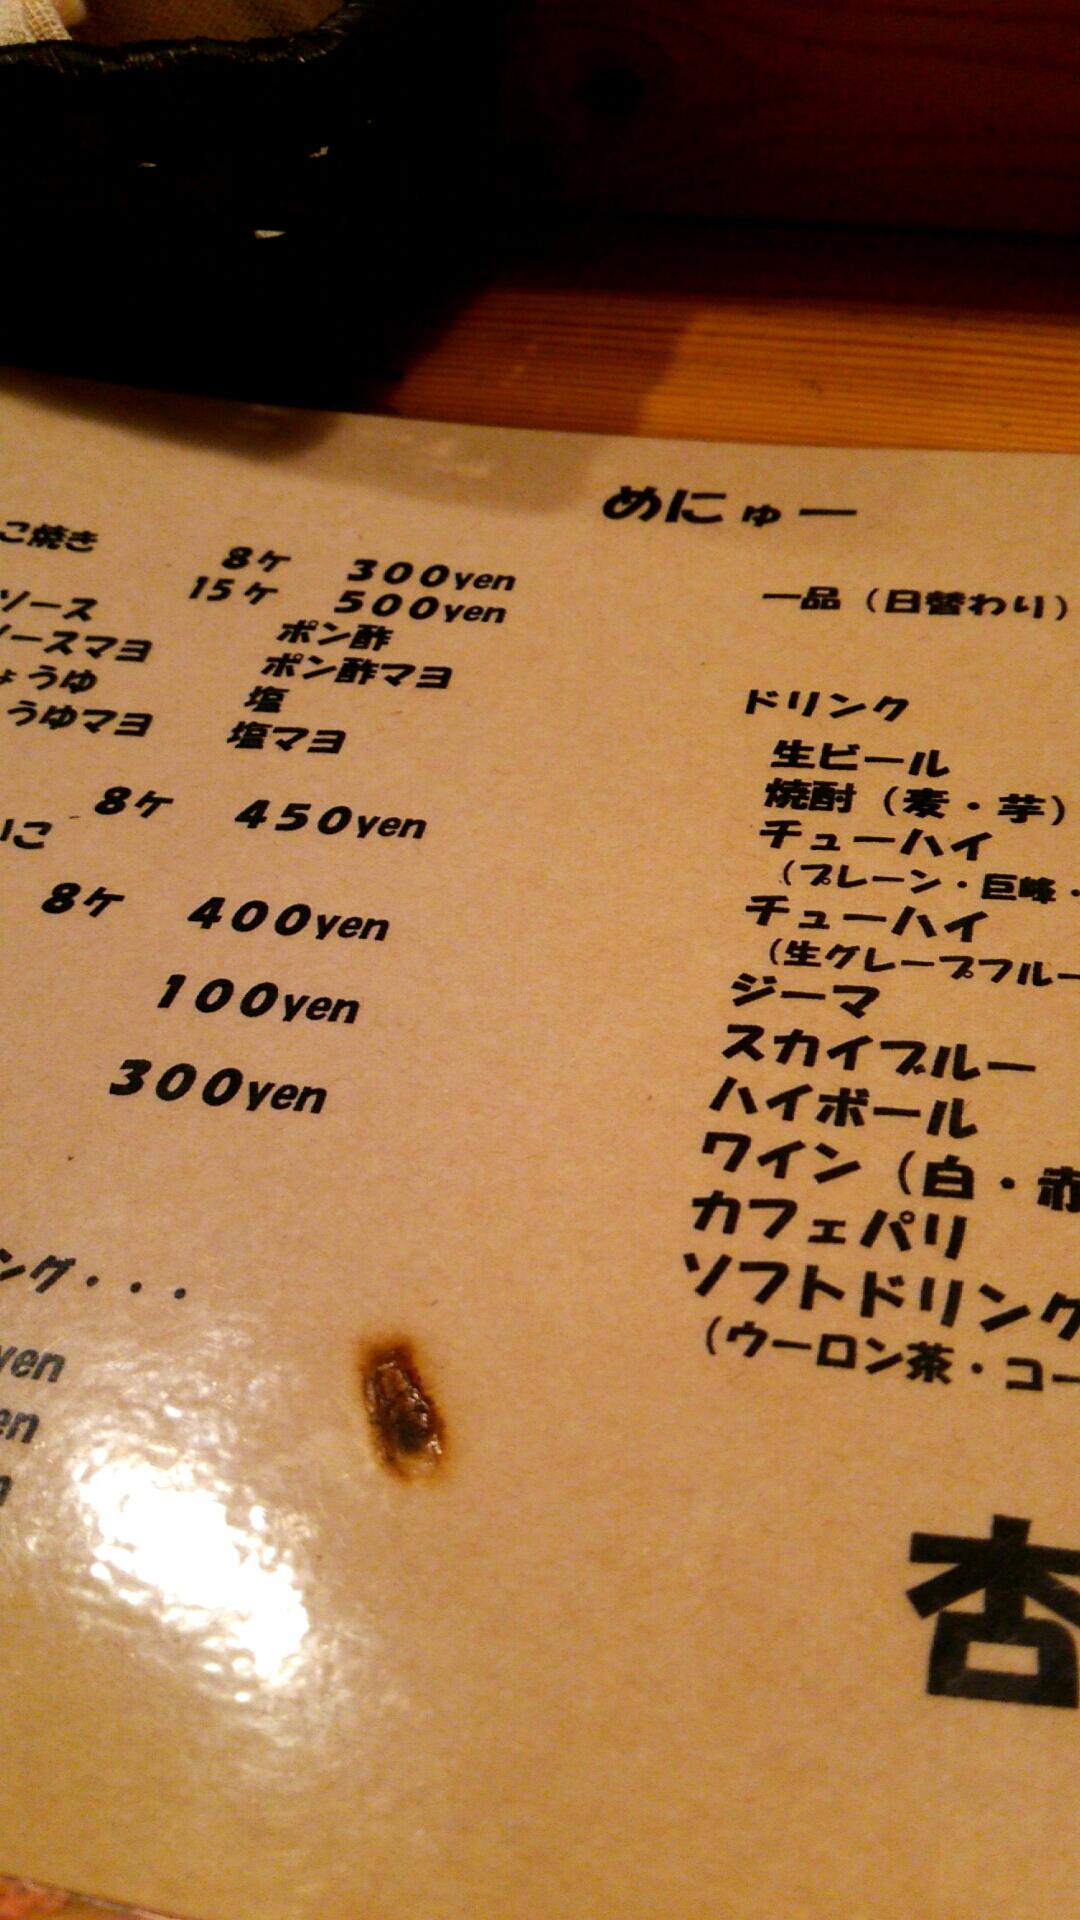 めにゅー
こ焼き 8ケ 300yen
15ケ 500yen
ソース ポン酢
ソースマヨ ポン酢マヨ
ょうゆ 塩
うゆマヨ 塩マヨ
8ケ 450yen
いこ
8ケ 400yen
100yen
300yen
ング・・・
yen
en
n
一品（日替わり）
ドリンク
生ビール
焼酎（麦・芋）
チューハイ
（プレーン・巨峰・
チューハイ
（生グレープフルー
ジーマ
スカイブルー
ハイボール
ワイン（白・赤
カフェパリ
ソフトドリンク
（ウーロン茶・コー
杏